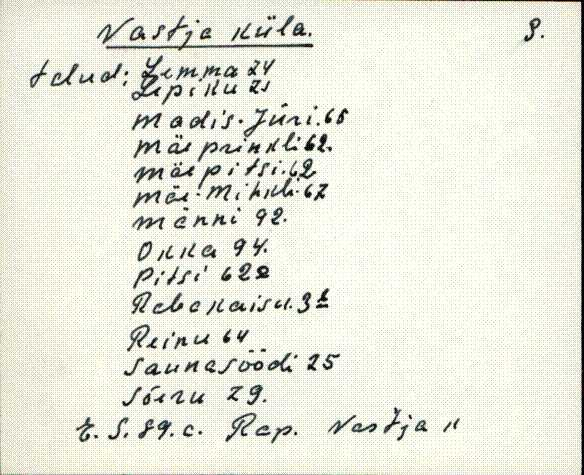 Vastja küla. 9.
talud: Lemma 24
Lepiku 21
Madis-Jüri. 65
Mäeprinkli 62.
Mäepitsi. 62
Mäe-Mihkli. 67
Männi 92.
Okka 94.
Pitsi 62a
Rebakaisu. 3b
Reinu 64
Saunasöödi 25
Sõeru 29.
E. S. 89. c. Rap. Vastja k